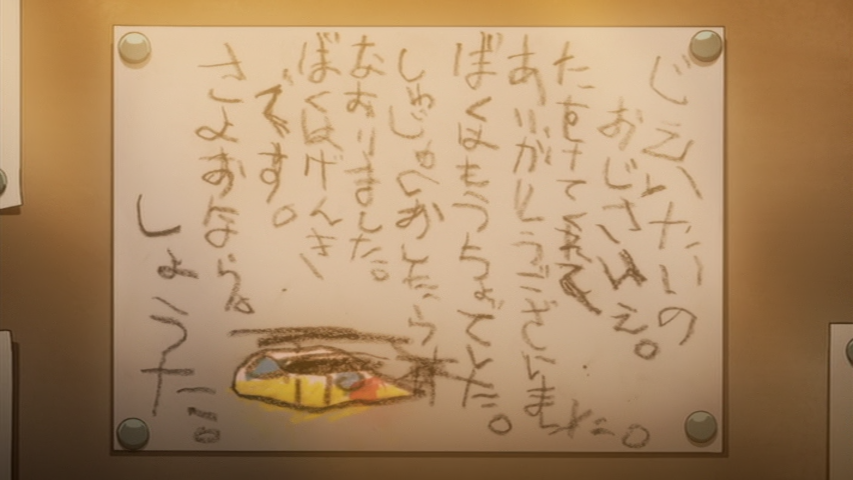 じえいたいの
おじさんえ。
たすけてくれて
ありがとうございました。
ぼくはもうちょでした。
しゅじゅつおしたら
なおりました。
ぼくはげんき
です。
さよおなら。
しょうた